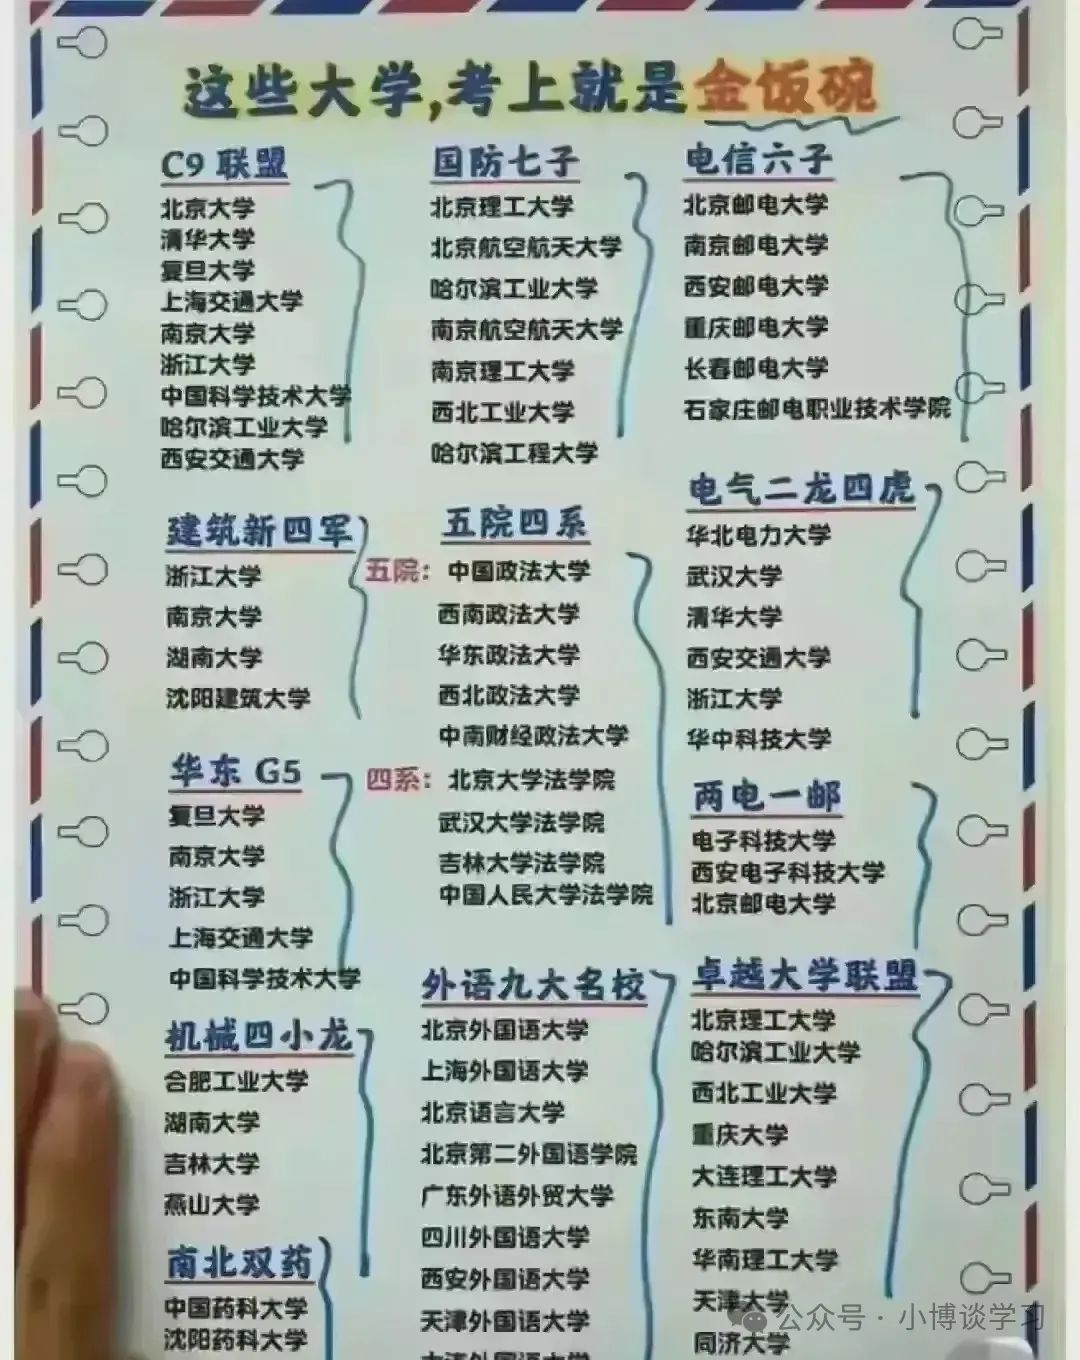 这些大学,考上就是金饭碗
C9 联盟
北京大学
清华大学
复旦大学
上海交通大学
南京大学
浙江大学
中国科学技术大学
哈尔滨工业大学
西安交通大学
国防七子
北京理工大学
北京航空航天大学
哈尔滨工业大学
南京航空航天大学
南京理工大学
西北工业大学
哈尔滨工程大学
电信六子
北京邮电大学
南京邮电大学
西安邮电大学
重庆邮电大学
长春邮电大学
石家庄邮电职业技术学院
建筑新四军
浙江大学
南京大学
湖南大学
沈阳建筑大学
五院四系
五院：中国政法大学
西南政法大学
华东政法大学
西北政法大学
中南财经政法大学
四系：北京大学法学院
武汉大学法学院
吉林大学法学院
中国人民大学法学院
电气二龙四虎
华北电力大学
武汉大学
清华大学
西安交通大学
浙江大学
华中科技大学
华东 G5
复旦大学
南京大学
浙江大学
上海交通大学
中国科学技术大学
两电一邮
电子科技大学
西安电子科技大学
北京邮电大学
机械四小龙
合肥工业大学
湖南大学
吉林大学
燕山大学
外语九大名校
北京外国语大学
上海外国语大学
北京语言大学
北京第二外国语学院
广东外语外贸大学
四川外国语大学
西安外国语大学
天津外国语大学
卓越大学联盟
北京理工大学
哈尔滨工业大学
西北工业大学
重庆大学
大连理工大学
东南大学
华南理工大学
天津大学
同济大学
南北双药
中国药科大学
沈阳药科大学
公众号·小博谈学习